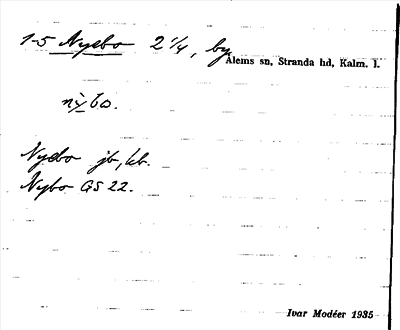 1-5 Nyebo 2 1/4, by
Ålems sn, Stranda hd, Kalm. l.
nỳbo.
Nyebo jb, kb.
Nybo GS 22.
Ivar Modéer 1935